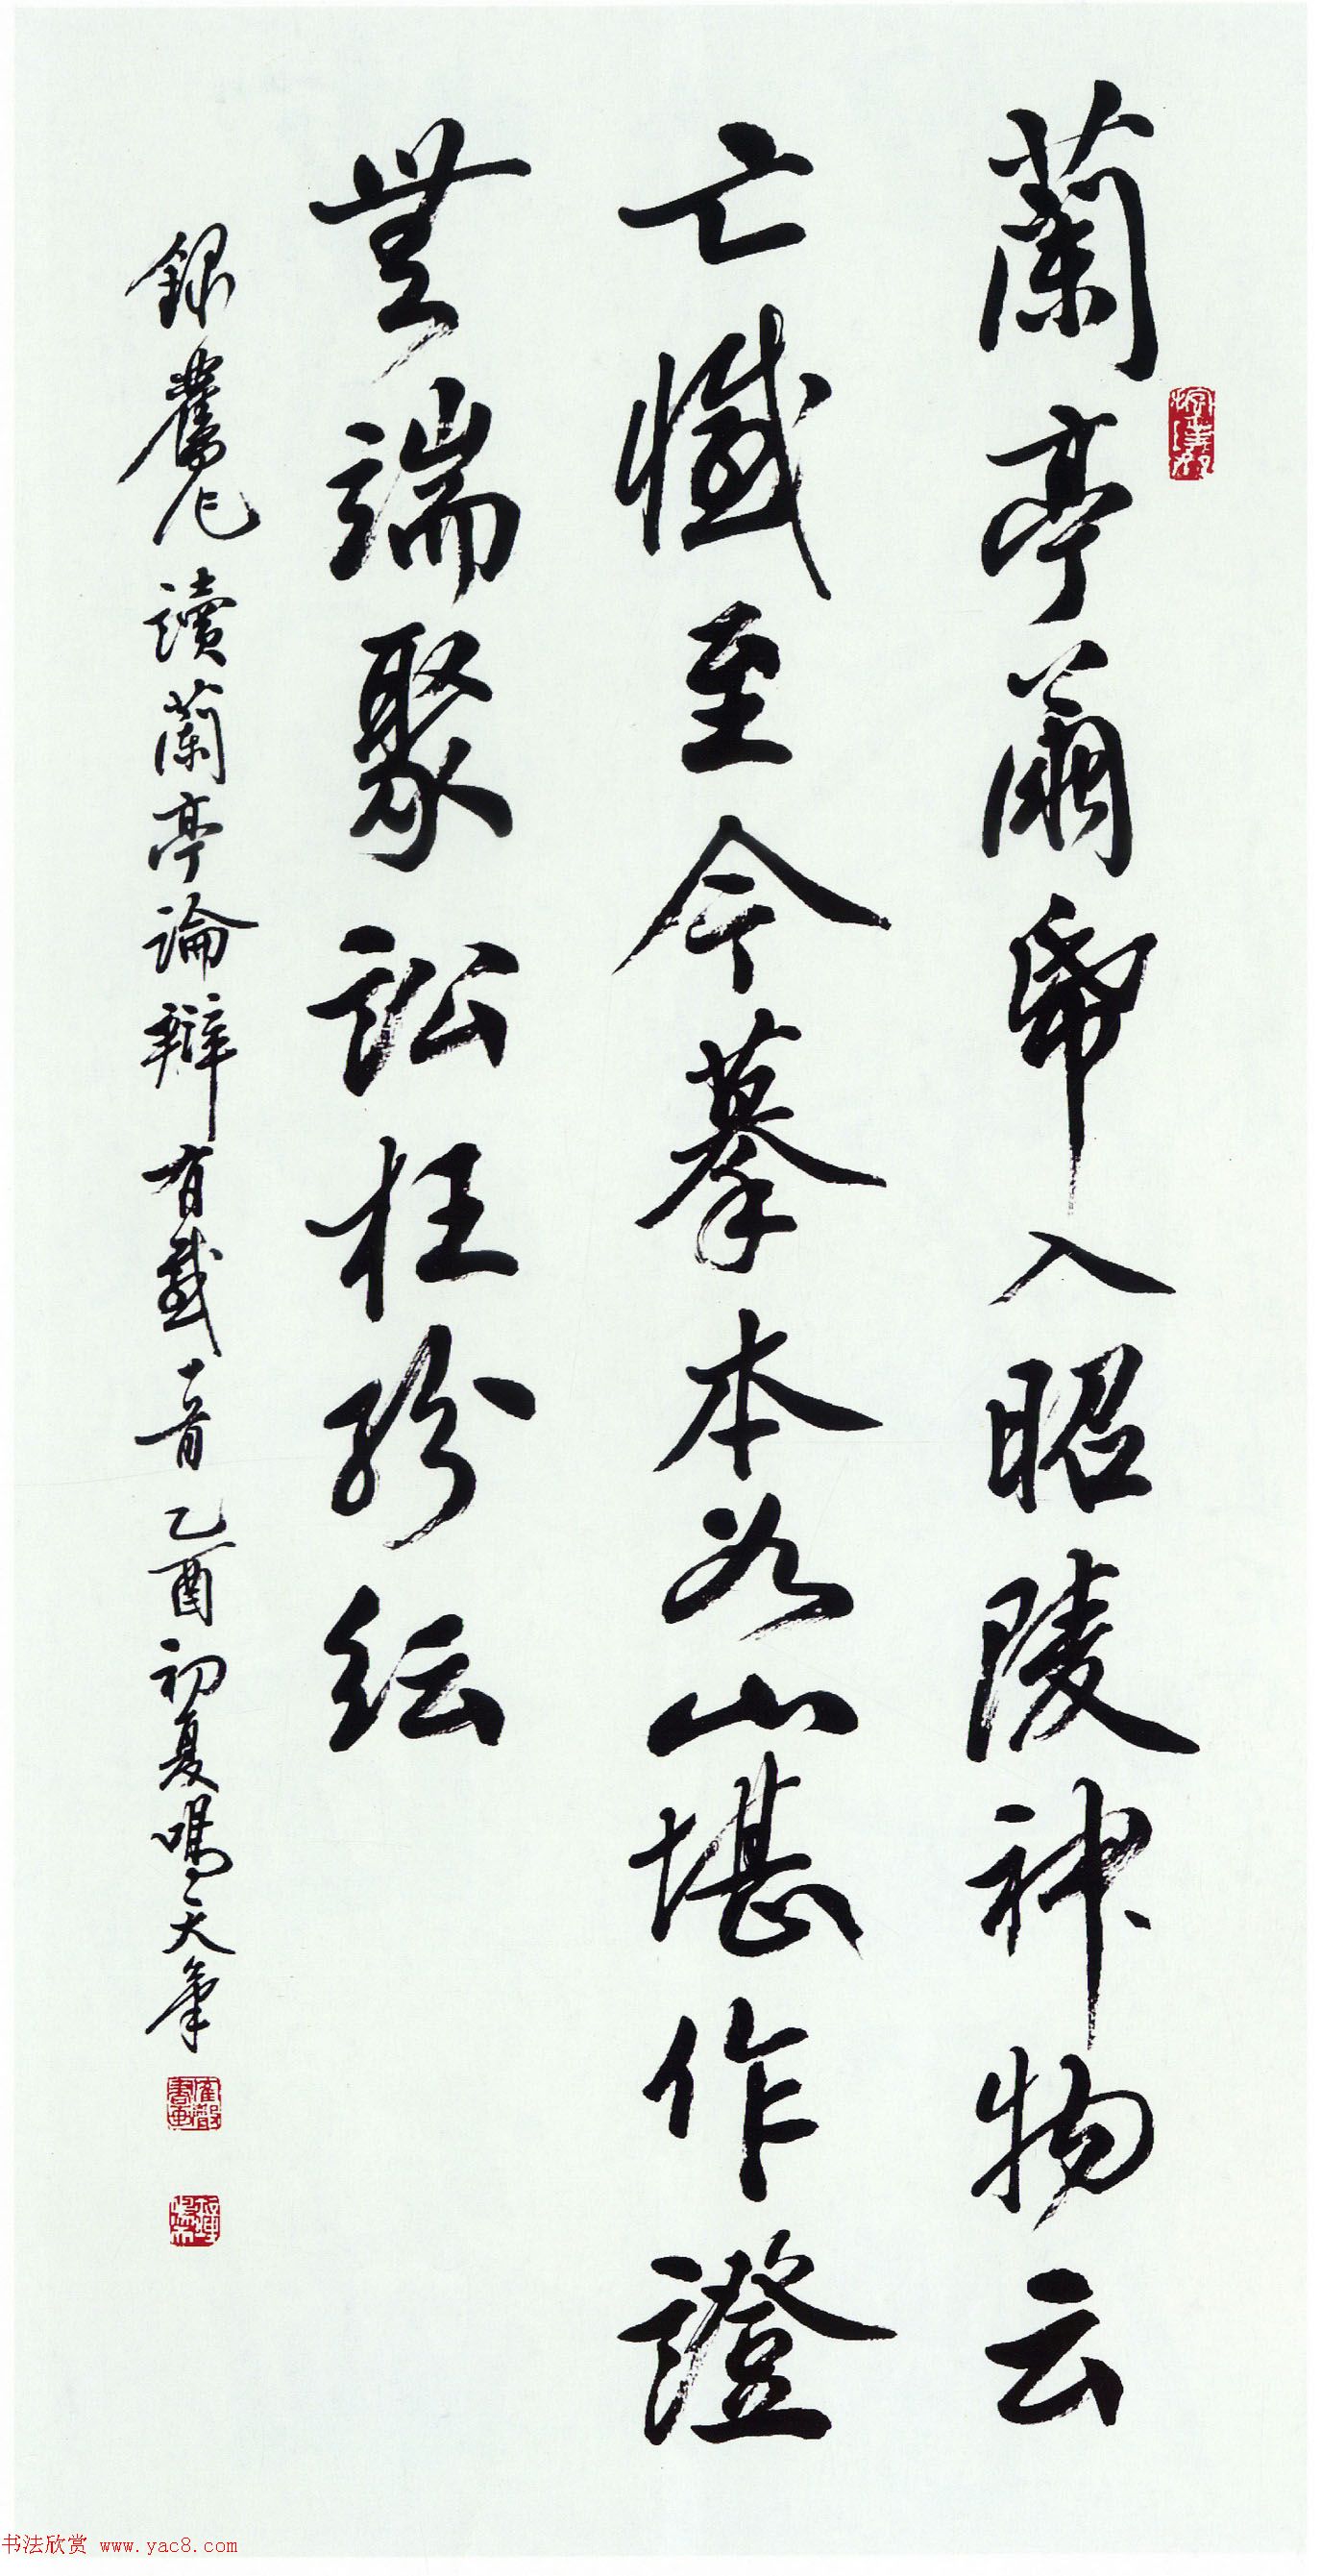 蘭亭繭帋入昭陵神物云
亡憾至今摹本如山堪作證
無端聚訟枉紛紜
錄舊作讀蘭亭論辯有感一首乙酉初夏鳴天筆
书法欣赏 www.yac8.com